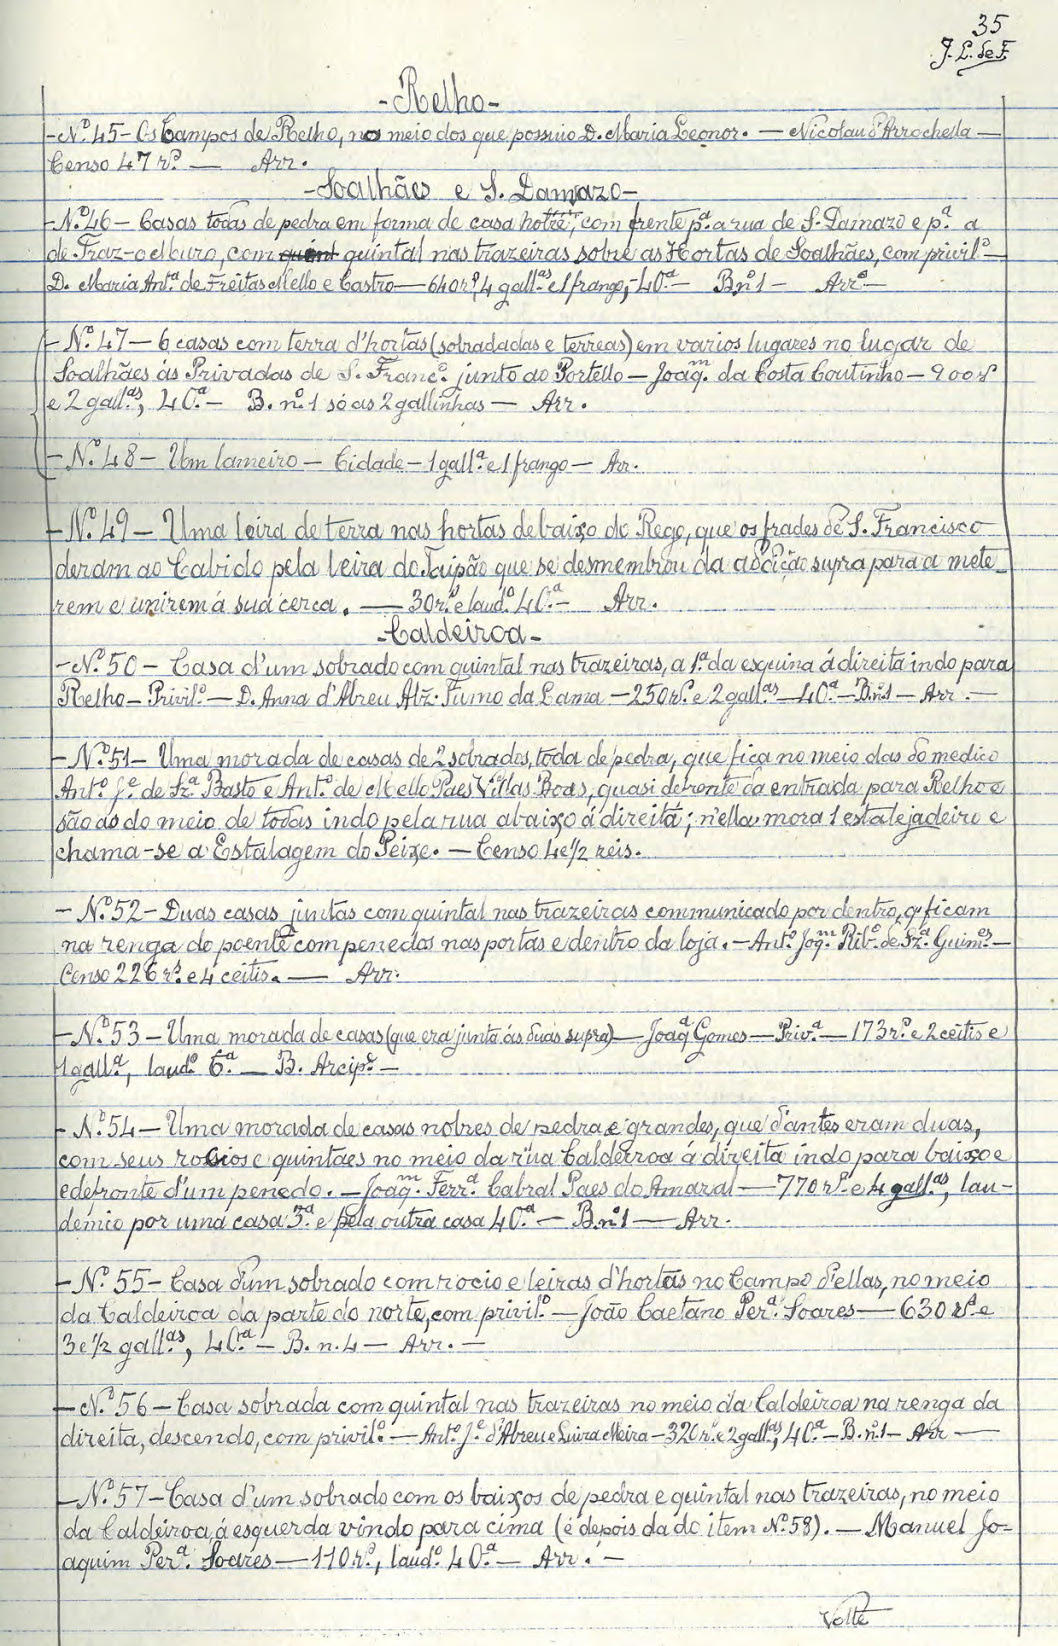 35
J. L. de F.
-Relho-
-Nº 45- Os Campos de Relho, no meio dos que possuio D. Maria Leonor. — Nicolau d'Arrochella —
Censo 47 rs. — Arr.
-Soalhães e S. Damazo-
-Nº 46- Casas todas de pedra em forma de casa nobre, com frente pª a rua de S. Damazo e pª a
de Traz-o-Muro, com quint quintal nas trazeiras sobre as Hortas de Soalhães, com privilº —
D. Maria Antª de Freitas Mello e Castro — 640 rs, 4 gallas e 1 frango, - 40ª - B. nº 1 - Arr. —
-Nº 47- 6 casas com terra d'hortas (sobradadas e terreas) em varios lugares no lugar de
Soalhães ás Privadas de S. Francº junto ao Portello — Joaqm da Costa Coutinho — 900 rs
e 2 gallas, 40ª - B. nº 1 só as 2 gallinhas — Arr.
-Nº 48- Um lameiro — Cidade — 1 gallª e 1 frango — Arr.
-Nº 49 - Uma leira de terra nas hortas debaixo do Rego, que os frades de S. Francisco
deram ao Cabido pela leira do Taipão que se desmembrou da addição supra para a mete-
rem e unirem á sua cerca. — 30 rs e laudº 40ª - Arr.
-Caldeirôa-
-Nº 50 - Casa d'um sobrado com quintal nas trazeiras, a 1ª da esquina á direita indo para
Relho - Privilº — D. Anna d'Abreu Alz. Fumo da Lama — 250 rs e 2 gallas — 40ª - B. nº 1 - Arr. —
-Nº 51 - Uma morada de casas de 2 sobrados, toda de pedra, que fica no meio das do medico
Antº Jº de Szª Basto e Antº de Mello Paes Villas Boas, quasi defronte da entrada para Relho e
são as do meio de todas indo pela rua abaixo á direita; n'ella mora 1 estalajadeiro e
chama-se a Estalagem do Peixe. — Censo 4 e 1/2 reis.
-Nº 52 - Duas casas juntas com quintal nas trazeiras communicado por dentro, q' ficam
na renga do poente com penedos nas portas e dentro da loja. — Antº Joqm Ribº de Szª Guimes —
Censo 226 rs e 4 ceitis. — Arr.
-Nº 53 - Uma morada de casas (que era junta ás duas supra) — Joaqª Gomes — Privª — 173 rs e 2 ceitis e
1 gallª, laudº 6ª — B. Arcipº —
-Nº 54 - Uma morada de casas nobres de pedra e grandes, que d'antes eram duas,
com seus rocios e quintaes no meio da rua Caldeirôa á direita indo para baixo e
e defronte d'um penedo. — Joaqm Ferrª Cabral Paes do Amaral — 770 rs e 4 gallas, lau-
demio por uma casa 3ª e pela outra casa 40ª — B. nº 1 — Arr.
-Nº 55 - Casa d'um sobrado com rocio e leiras d'hortas no Campo d'ellas, no meio
da Caldeirôa da parte do norte, com privilº — João Caetano Perª Soares — 630 rs e
3 e 1/2 gallas, 40ª - B. n. 4 — Arr. —
-Nº 56 - Casa sobrada com quintal nas trazeiras no meio da Caldeirôa na renga da
direita, descendo, com privilº — Antº Jº d'Abreu e Meira - 320 rs e 2 gallas, 40ª - B. nº 1 - Arr —
-Nº 57 - Casa d'um sobrado com os baixos de pedra e quintal nas trazeiras, no meio
da Caldeirôa, á esquerda vindo para cima (é depois da do item Nº 58). — Manuel Jo-
aquim Perª Soares — 110 rs, laudº 40ª — Arr. —
Volte